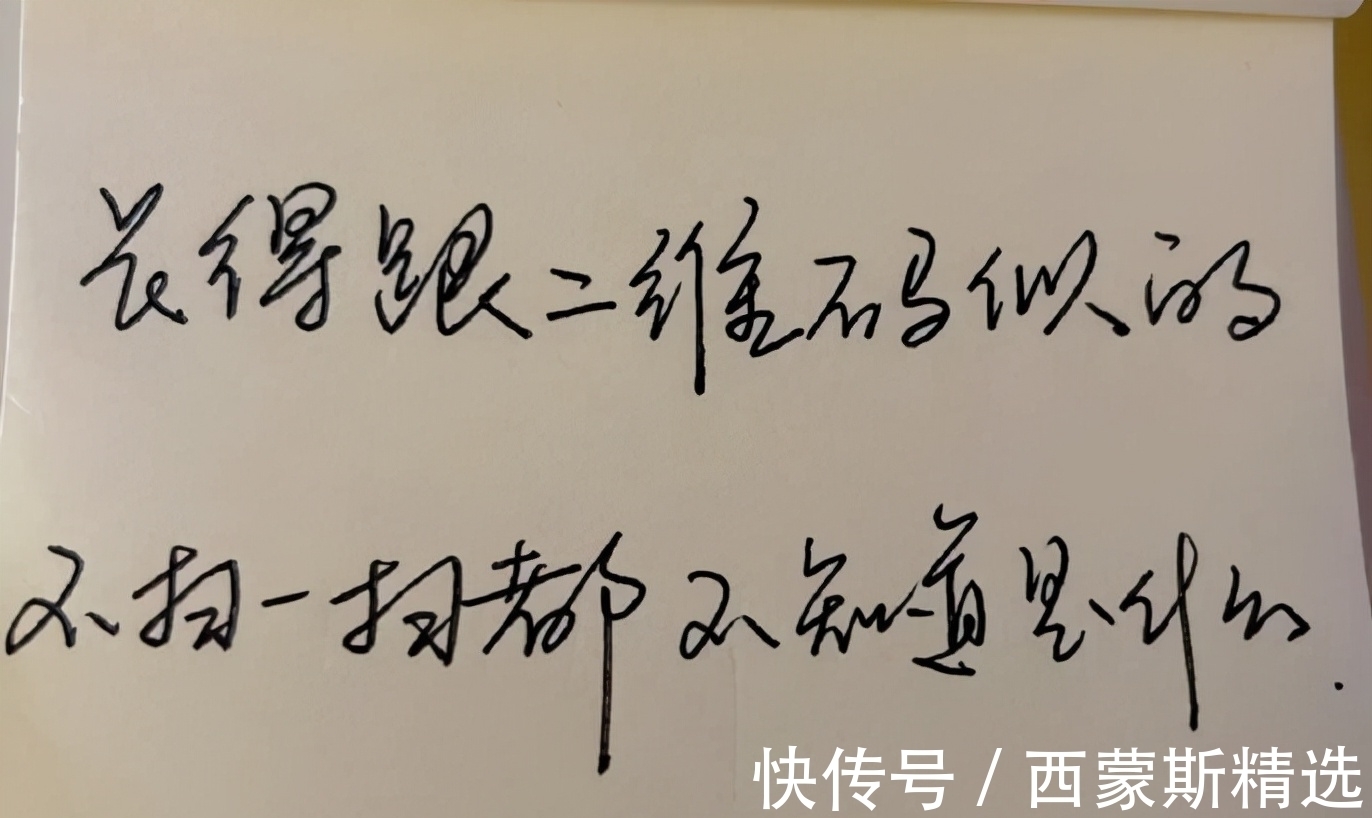 长得跟二维码似的
不扫一扫都不知道是什么.
快传号 / 西蒙斯精选